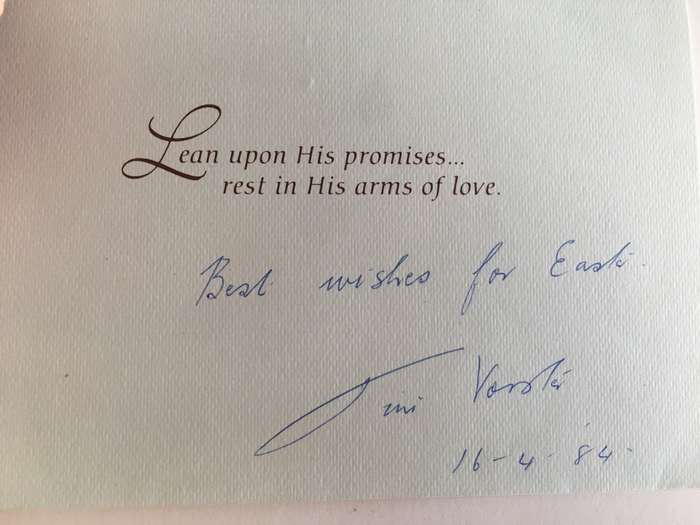 Lean upon His promises...
rest in His arms of love.
Best wishes for Easter.
Vorster
16-4-84.